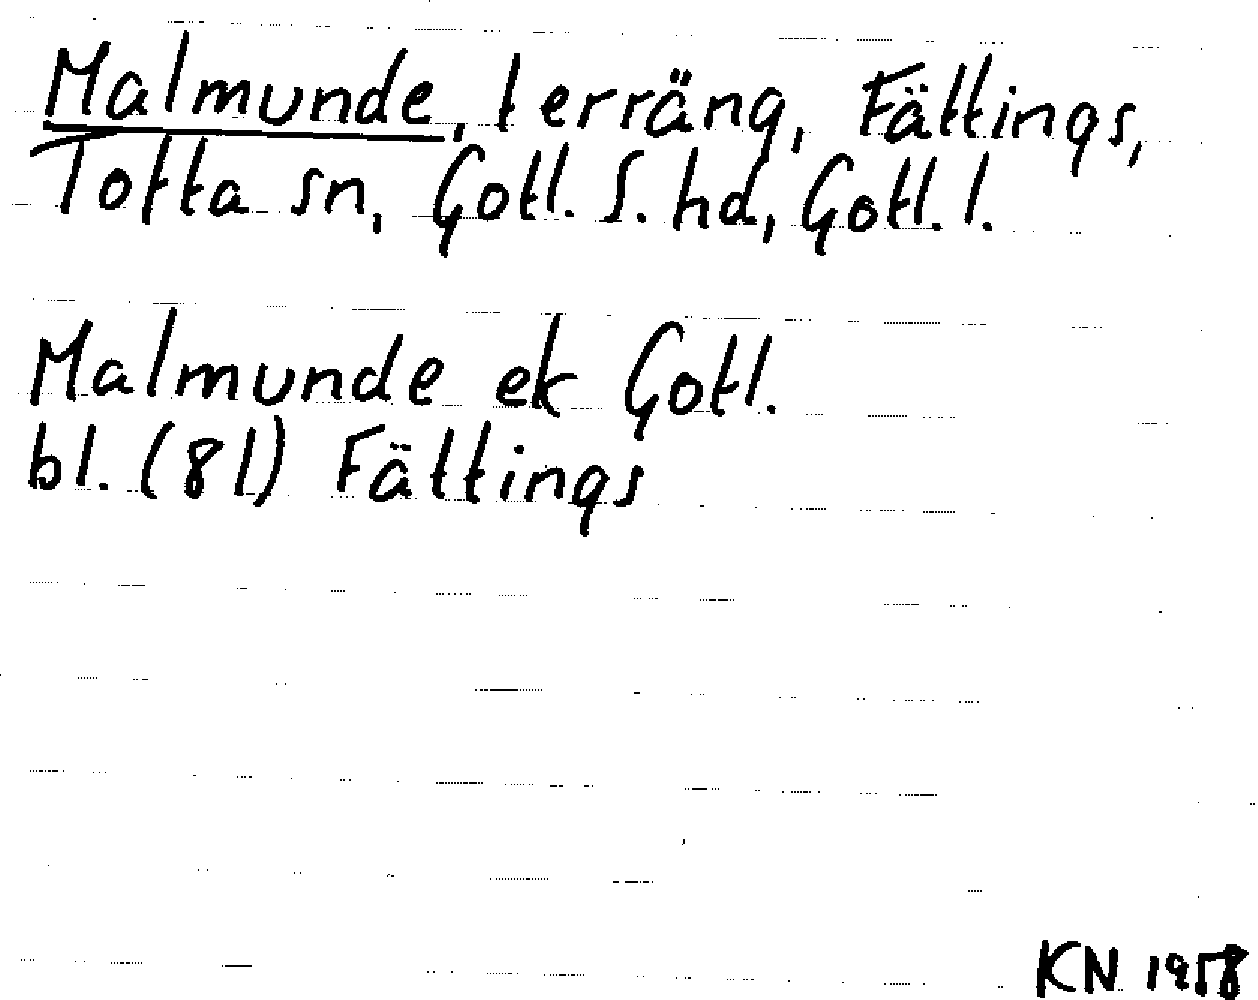 Malmunde, terräng, Fättings,
Tofta sn, Gotl. S. hd, Gotl. l.
Malmunde ek Gotl.
bl. (81) Fättings
KN 1958